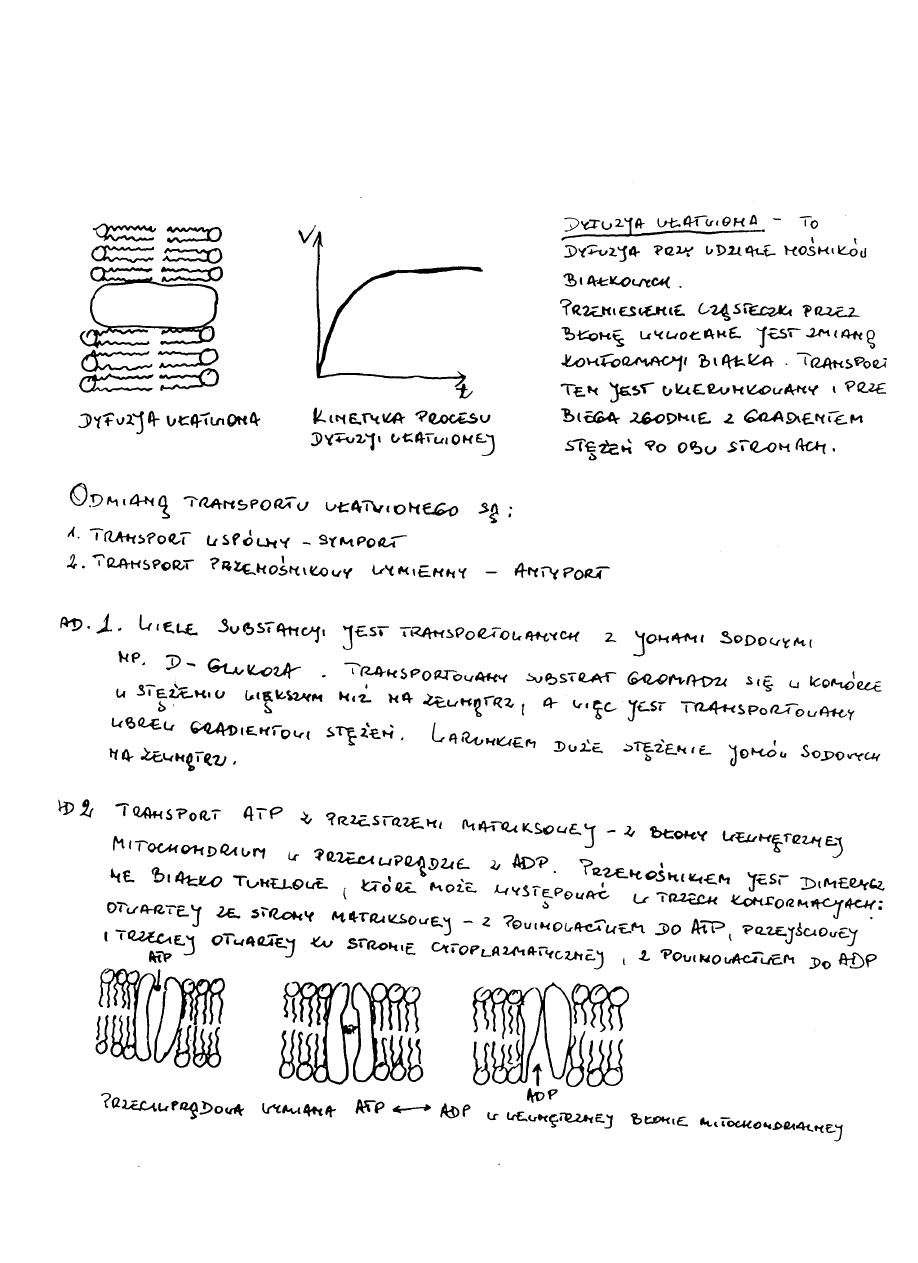 V
t
DYFUZJA UŁATWIONA
KINETYKA PROCESU
DYFUZJI UŁATWIONEJ
DYFUZJA UŁATWIONA - TO
DYFUZJA PRZY UDZIALE NOŚNIKÓW
BIAŁKOWYCH.
PRZENIESIENIE CZĄSTECZKI PRZEZ
BŁONĘ WYWOŁANE JEST ZMIANĄ
KONFORMACJI BIAŁKA. TRANSPORT
TEN JEST UKIERUNKOWANY I PRZE
BIEGA ZGODNIE Z GRADIENTEM
STĘŻEŃ PO OBU STRONACH.
ODMIANĄ TRANSPORTU UŁATWIONEGO SĄ:
1. TRANSPORT WSPÓLNY - SYMPORT
2. TRANSPORT PRZENOŚNIKOWY WYMIENNY - ANTYPORT
AD. 1. WIELE SUBSTANCJI JEST TRANSPORTOWANYCH Z JONAMI SODOWYMI
NP. D-GLUKOZA. TRANSPORTOWANY SUBSTRAT GROMADZI SIĘ W KOMÓRCE
W STĘŻENIU WIĘKSZYM NIŻ NA ZEWNĄTRZ, A WIĘC JEST TRANSPORTOWANY
WBREW GRADIENTOWI STĘŻEŃ. WARUNKIEM DUŻE STĘŻENIE JONÓW SODOWYCH
NA ZEWNĄTRZ.
AD 2 TRANSPORT ATP Z PRZESTRZENI MATRIKSOWEJ - Z BŁONY WEWNĘTRZNEJ
MITOCHONDRIUM W PRZECIWPRĄDZIE Z ADP. PRZENOŚNIKIEM JEST DIMERYCZ
NE BIAŁKO TUNELOWE, KTÓRE MOŻE WYSTĘPOWAĆ W TRZECH KONFORMACJACH:
OTWARTEJ ZE STRONY MATRIKSOWEJ - Z POWINOWACTWEM DO ATP, PRZEJŚCIOWEJ
I TRZECIEJ OTWARTEJ KU STRONIE CYTOPLAZMATYCZNEJ, Z POWINOWACTWEM DO ADP
ATP
ADP
PRZECIWPRĄDOWA WYMIANA ATP ↔ ADP W WEWNĘTRZNEJ BŁONIE MITOCHONDRIALNEJ